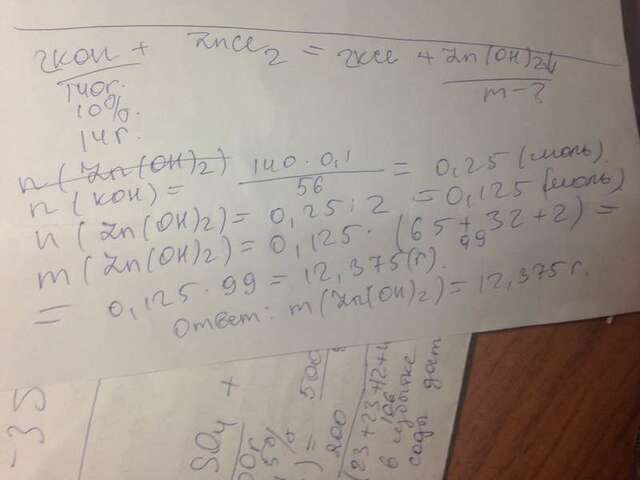 2KOH + ZnCl2 = 2KCl + Zn(OH)2↓
140г. m-?
10%.
14г.
n(Zn(OH)2)
n(KOH) = 140·0,1 / 56 = 0,25 (моль)
n(Zn(OH)2) = 0,25:2 = 0,125 (моль)
m(Zn(OH)2) = 0,125·(65+32+2) =
99
= 0,125·99 = 12,375(г).
Ответ: m(Zn(OH)2) = 12,375г.
-35
SO4 +
) = 500
200
(23+23+12+4
106
в избытке
соды дост